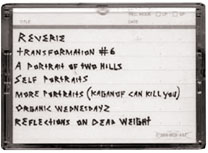 TITLE
REVERIE
TRANSFORMATION #6
A PORTRAIT OF TWO HILLS
SELF PORTRAITS
MORE PORTRAITS (KAGANOF CAN KILL YOU)
ORGANIC WEDNESDAYZ
REFLECTIONS ON DEAD WEIGHT